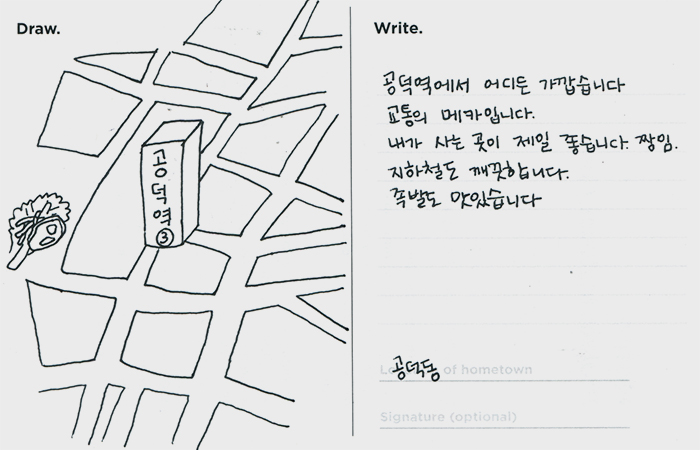 Draw.
공덕역
3
Write.
공덕역에서 어디든 가깝습니다
교통의 메카입니다.
내가 사는 곳이 제일 좋습니다. 짱임.
지하철도 깨끗합니다.
족발도 맛있습니다
공덕동
of hometown
Signature (optional)